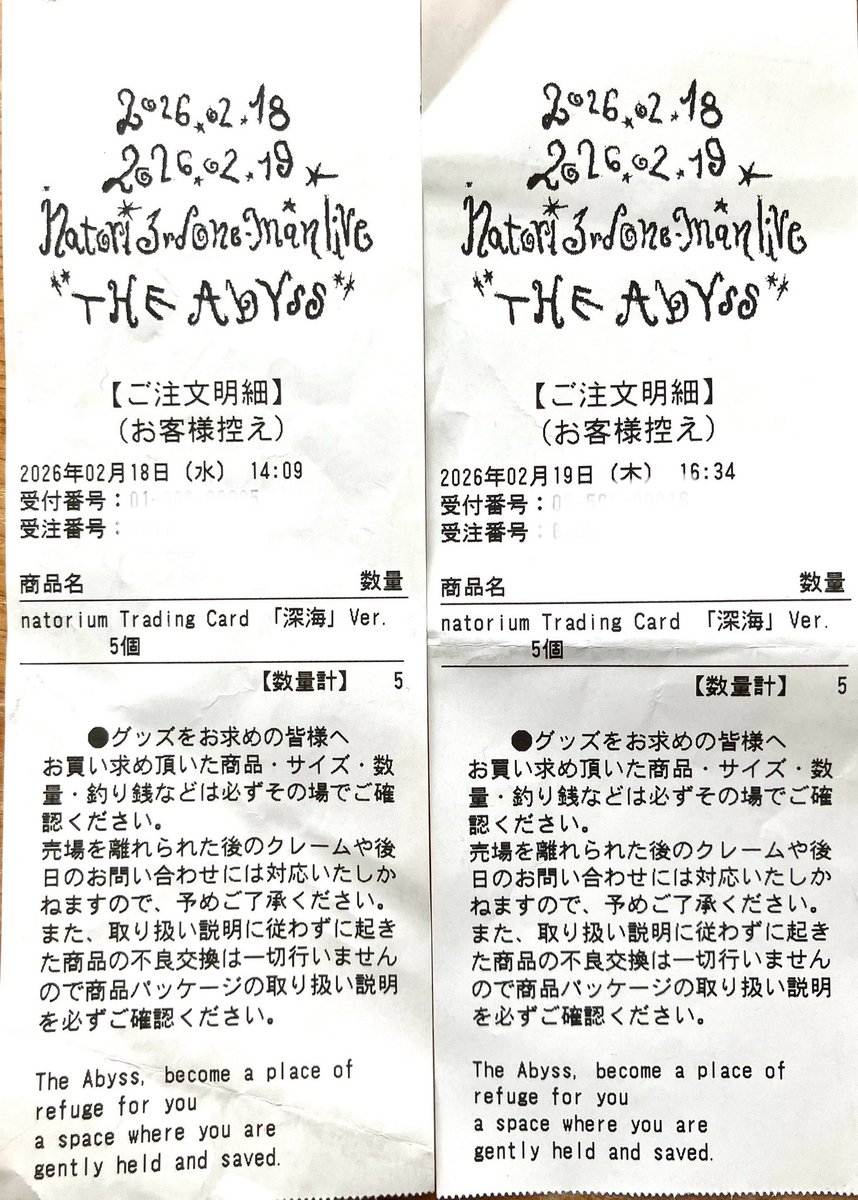 2026.02.18
2026.02.19
natori 3rd one-man live
"THE ABYSS"
【ご注文明細】
(お客様控え)
2026年02月18日（水） 14:09
受付番号：
受注番号：
商品名 数量
natorium Trading Card 「深海」Ver.
5個
【数量計】 5
●グッズをお求めの皆様へ
お買い求め頂いた商品・サイズ・数
量・釣り銭などは必ずその場でご確
認ください。
売場を離れられた後のクレームや後
日のお問い合わせには対応いたしか
ねますので、予めご了承ください。
また、取り扱い説明に従わずに起き
た商品の不良交換は一切行いません
ので商品パッケージの取り扱い説明
を必ずご確認ください。
The Abyss, become a place of
refuge for you
a space where you are
gently held and saved.
2026.02.18
2026.02.19
natori 3rd one-man live
"THE ABYSS"
【ご注文明細】
(お客様控え)
2026年02月19日（木） 16:34
受付番号：
受注番号：
商品名 数量
natorium Trading Card 「深海」Ver.
5個
【数量計】 5
●グッズをお求めの皆様へ
お買い求め頂いた商品・サイズ・数
量・釣り銭などは必ずその場でご確
認ください。
売場を離れられた後のクレームや後
日のお問い合わせには対応いたしか
ねますので、予めご了承ください。
また、取り扱い説明に従わずに起き
た商品の不良交換は一切行いません
ので商品パッケージの取り扱い説明
を必ずご確認ください。
The Abyss, become a place of
refuge for you
a space where you are
gently held and saved.